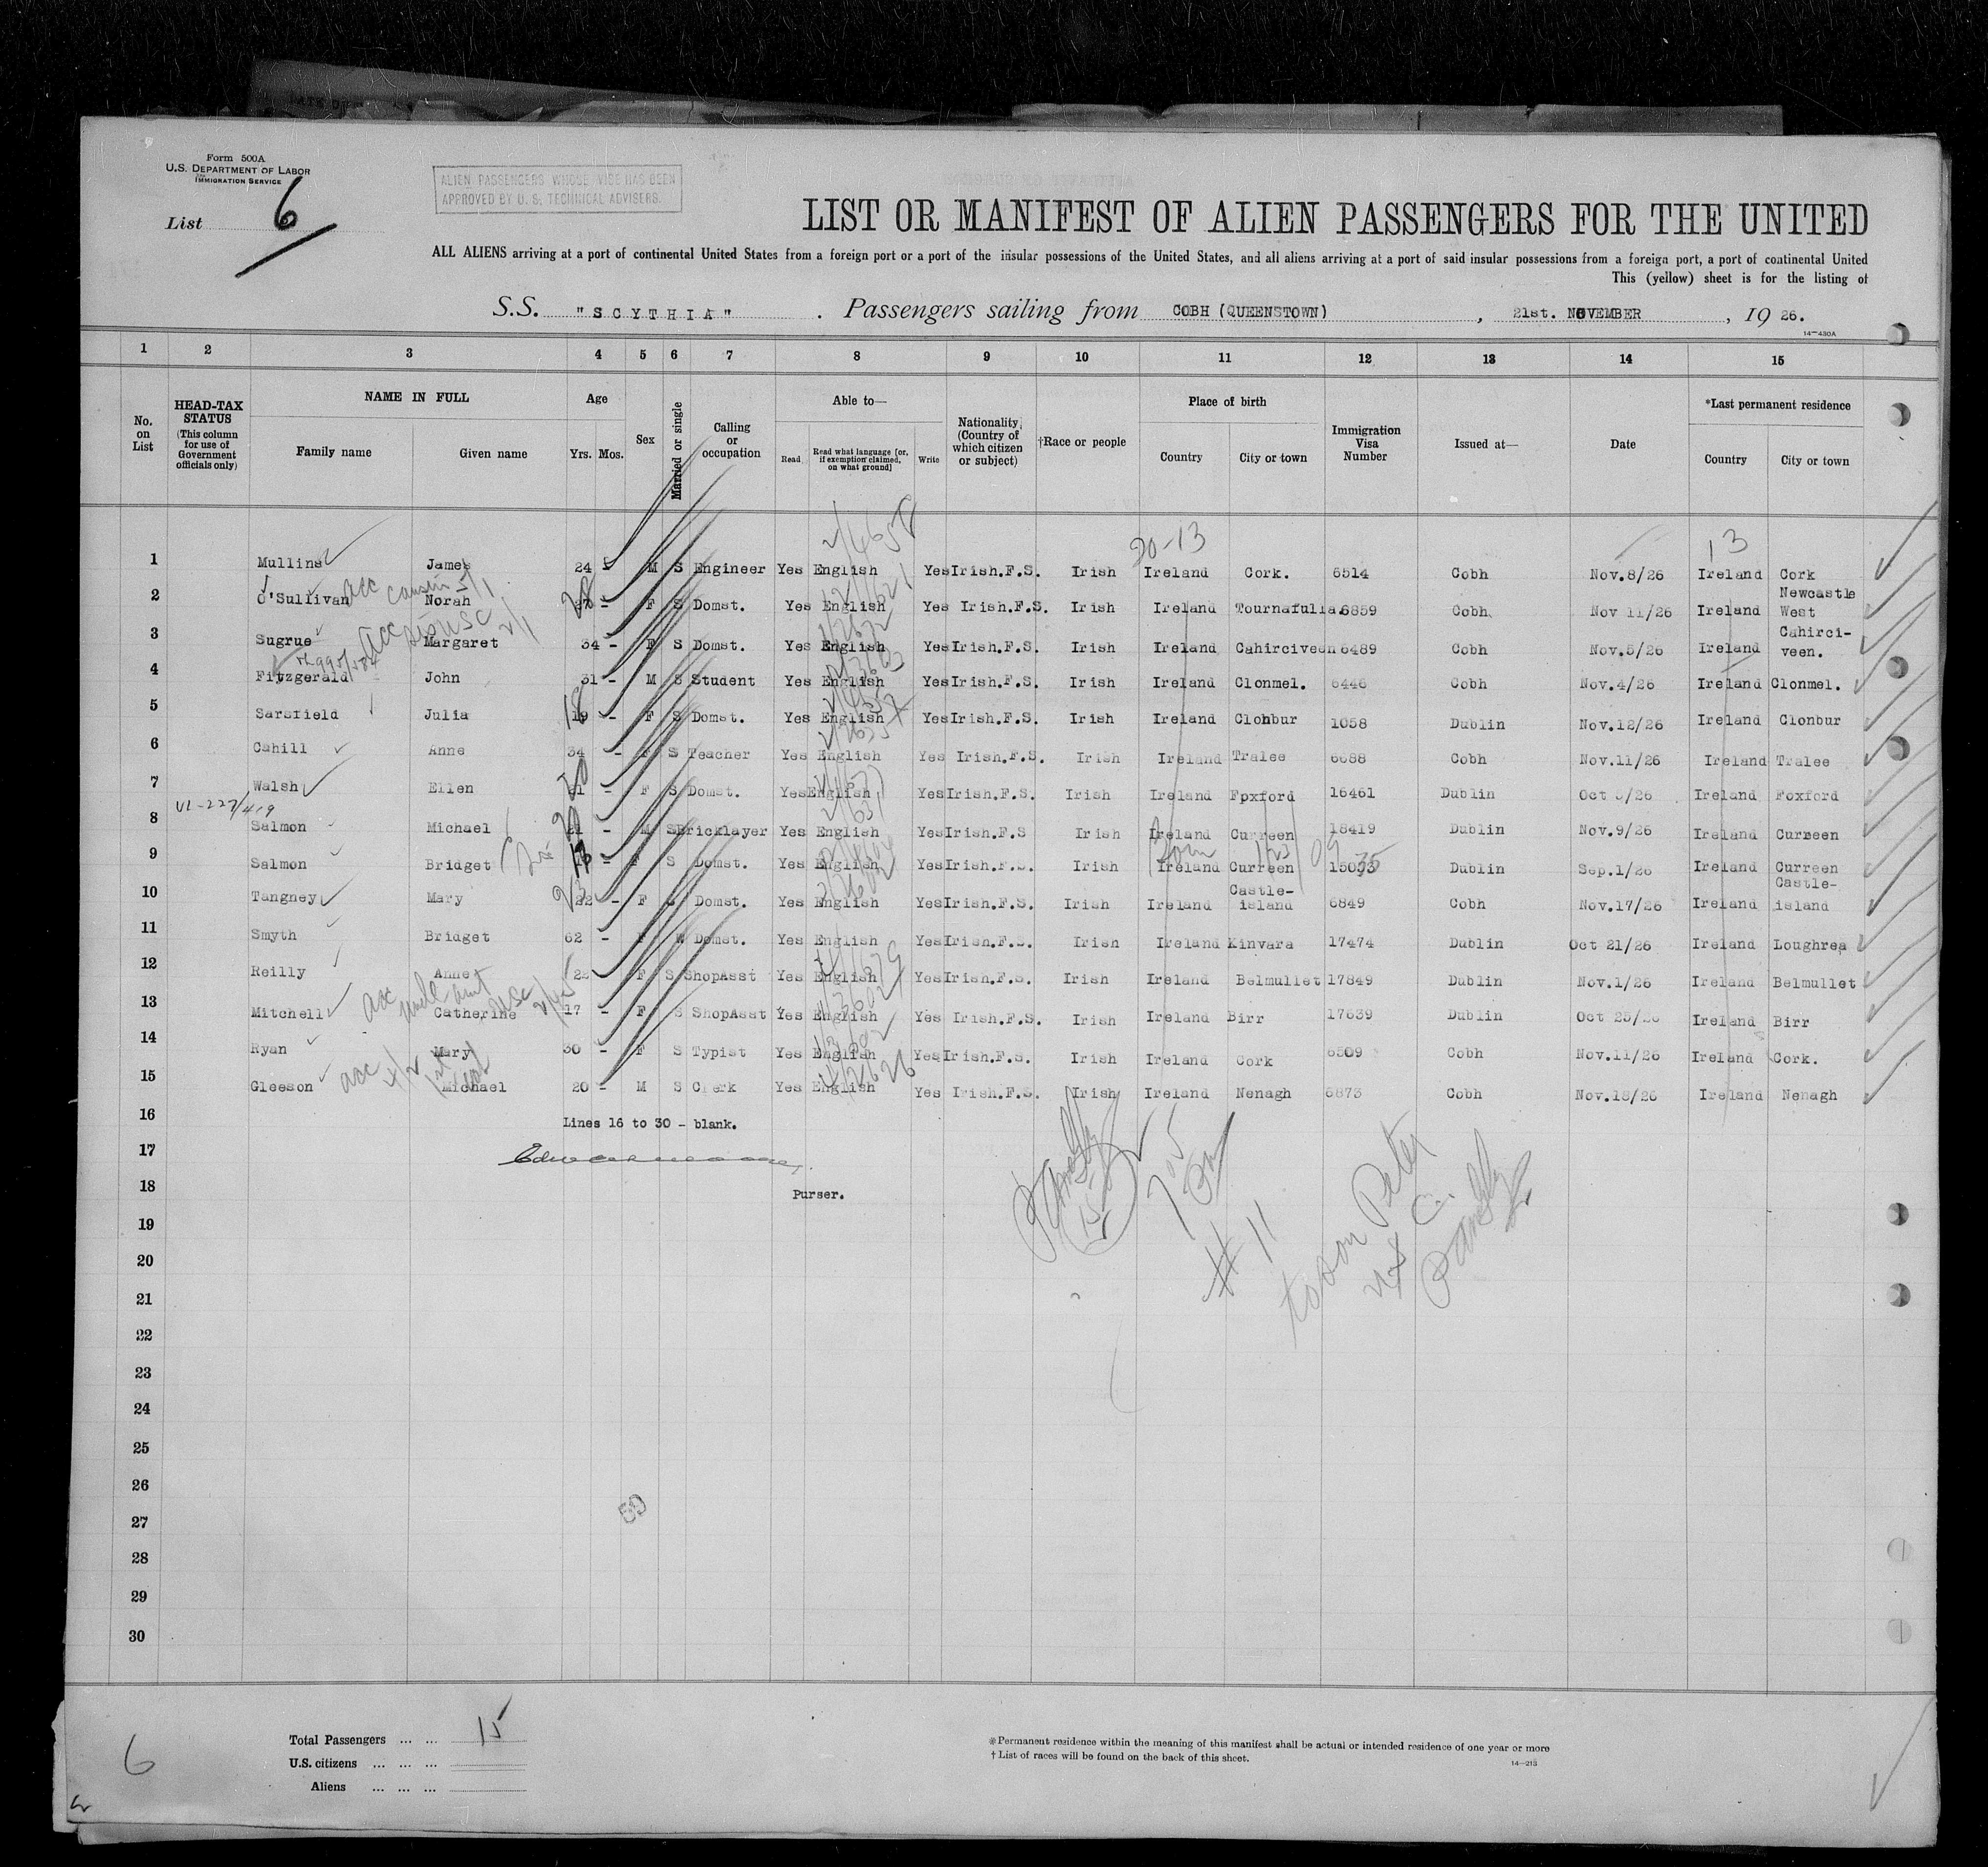 Form 500A
U.S. DEPARTMENT OF LABOR
IMMIGRATION SERVICE
List 6
ALIEN PASSENGERS WHOSE VISE HAS BEEN
APPROVED BY U. S. TECHNICAL ADVISERS.
LIST OR MANIFEST OF ALIEN PASSENGERS FOR THE UNITED
ALL ALIENS arriving at a port of continental United States from a foreign port or a port of the insular possessions of the United States, and all aliens arriving at a port of said insular possessions from a foreign port, a port of continental United
This (yellow) sheet is for the listing of
S.S. "SCYTHIA" . Passengers sailing from COBH (QUEENSTOWN) , 21st. NOVEMBER , 19 26.
14—430A
1 2 3 4 5 6 7 8 9 10 11 12 13 14 15
No. on List
HEAD-TAX STATUS (This column for use of Government officials only)
NAME IN FULL
Family name Given name
Age
Yrs. Mos.
Sex
Married or single
Calling or occupation
Able to—
Read Read what language [or, if exemption claimed, on what ground] Write
Nationality (Country of which citizen or subject)
†Race or people
Place of birth
Country City or town
Immigration Visa Number
Issued at—
Date
*Last permanent residence
Country City or town
20-13 13
1 Mullins James 24 - M S Engineer Yes English Yes Irish.F.S. Irish Ireland Cork. 6514 Cobh Nov.8/26 Ireland Cork
2 O'Sullivan Norah 27 - F S Domst. Yes English Yes Irish.F.S. Irish Ireland Tournafulla 6859 Cobh Nov 11/26 Ireland Newcastle West
acc cousin
28
3 Sugrue Margaret 34 - F S Domst. Yes English Yes Irish.F.S. Irish Ireland Cahirciveen 6489 Cobh Nov.5/26 Ireland Cahirci-veen.
acc sis USC
4 Fitzgerald John 31 - M S Student Yes English Yes Irish.F.S. Irish Ireland Clonmel. 6446 Cobh Nov.4/26 Ireland Clonmel.
5 Sarsfield Julia 19 - F S Domst. Yes English Yes Irish.F.S. Irish Ireland Clonbur 1058 Dublin Nov.12/26 Ireland Clonbur
18
6 Cahill Anne 34 - F S Teacher Yes English Yes Irish.F.S. Irish Ireland Tralee 6688 Cobh Nov.11/26 Ireland Tralee
7 Walsh Ellen 21 - F S Domst. Yes English Yes Irish.F.S. Irish Ireland Foxford 16461 Dublin Oct /26 Ireland Foxford
20
8 Salmon Michael 21 - M S Bricklayer Yes English Yes Irish.F.S Irish Ireland Curreen 18419 Dublin Nov.9/26 Ireland Curreen
20
9 Salmon Bridget - F S Domst. Yes English Yes Irish.F.S. Irish Ireland Curreen 15035 Dublin Sep.1/26 Ireland Curreen
10 Tangney Mary 22 - F S Domst. Yes English Yes Irish.F.S. Irish Ireland Castle-island 6849 Cobh Nov.17/26 Ireland Castle-island
23
11 Smyth Bridget 62 - F W Domst. Yes English Yes Irish.F.S. Irish Ireland Kinvara 17474 Dublin Oct 21/26 Ireland Loughrea
12 Reilly Anne - F S ShopAsst Yes English Yes Irish.F.S. Irish Ireland Belmullet 17849 Dublin Nov.1/26 Ireland Belmullet
13 Mitchell Catherine 17 - F S ShopAsst Yes English Yes Irish.F.S. Irish Ireland Birr 17639 Dublin Oct 25/26 Ireland Birr
acc uncle aunt USC
14 Ryan Mary 30 - F S Typist Yes English Yes Irish.F.S. Irish Ireland Cork 6509 Cobh Nov.11/26 Ireland Cork.
15 Gleeson Michael 20 - M S Clerk Yes English Yes Irish.F.S. Irish Ireland Nenagh 6873 Cobh Nov.18/26 Ireland Nenagh
acc
16
Lines 16 to 30 - blank.
17
18
Purser.
19
# 11
to son Peter
20
21
22
23
24
25
26
27
28
29
30
Total Passengers ... ... 15
U.S. citizens ... ... ...
Aliens ... ... ...
6
*Permanent residence within the meaning of this manifest shall be actual or intended residence of one year or more
† List of races will be found on the back of this sheet.
14—213